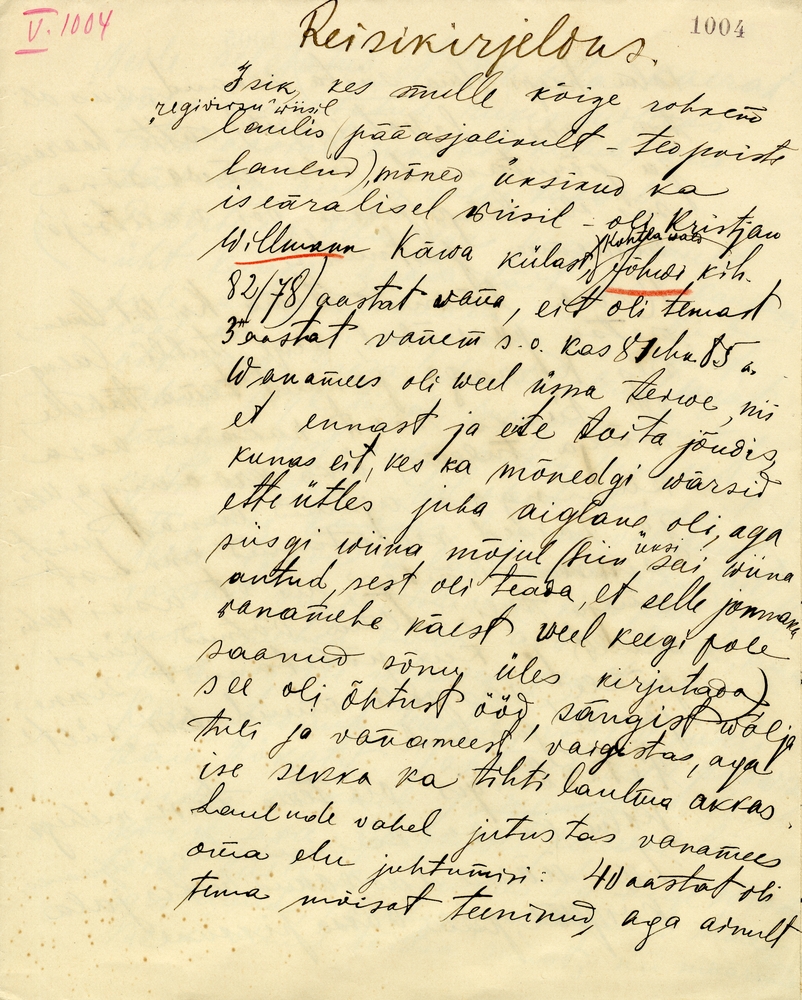 V. 1004
1004
Reisikirjeldus.
Isik, kes mulle kõige rohkem
"regivärsi" wiisil
laulis (pääasjalikult - teopoiste
laulud), mõned üksikud ka
iseäralisel wiisil - oli Kristjan
Kohtla wald
Willmann Käwa külast, Jõhwi kih.
82/78) aastat wana, eit oli temast
3 aastat vanem s.o. kas 81 ehk 85 a.
Wanamees oli weel üsna terwe, nii
et ennast ja eite toita jõudis,
kunas eit, kes ka mõnedgi wärsid
ette ütles juba aiglane oli, aga
siisgi wiina mõjul (siin üksi sai wiina
antud, sest oli teada, et selle jonnaka
vanamehe käest weel keegi pole
saanud sõnu üles kirjutada)
see oli õhtust ööd, sängist wälja
tuli ja vanameest vaigistas, aga
ise sekka ka tihti laulma akkas.
Laulude vahel jutustas vanamees
oma elu juhtumisi: 40 aastat oli
tema mõisat teeninud, aga ainult